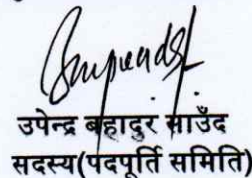 उपेन्द्र बहादुर साउँद
सदस्य(पदपूर्ति समिति)